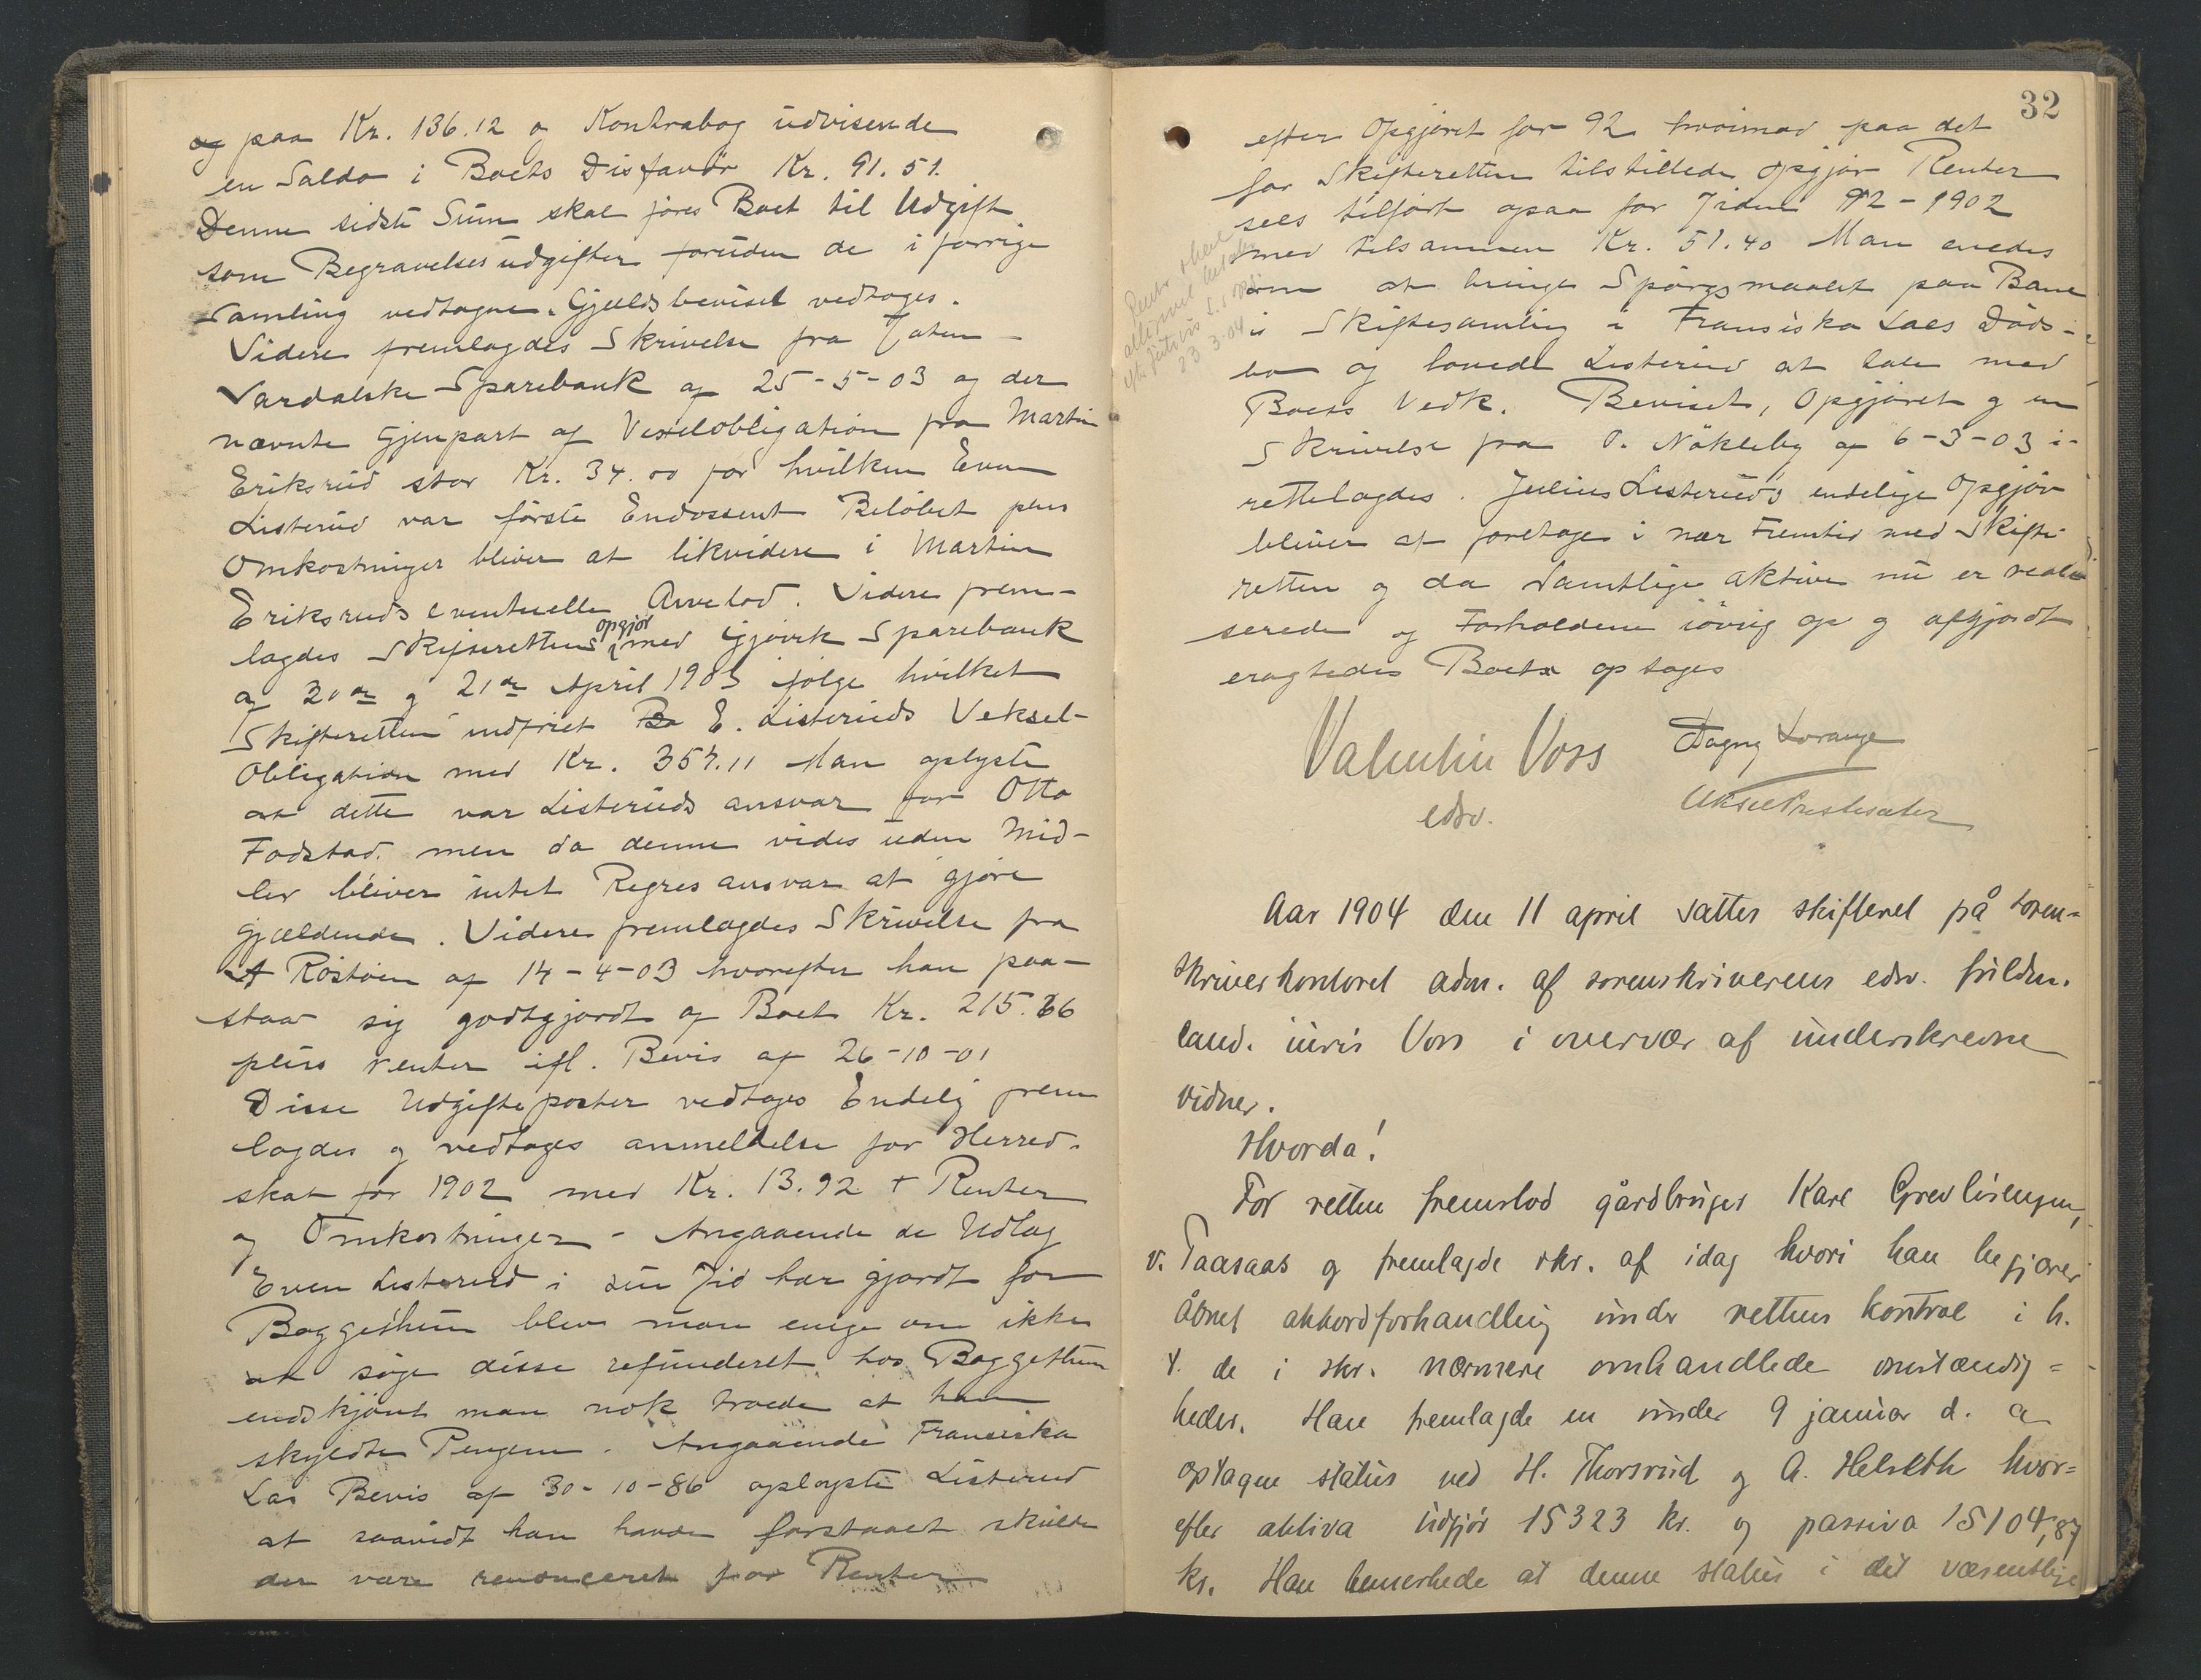 og paa Kr. 136.12 o Kontrabog udvisende
en Saldo i Boets Disfavør Kr. 91.51.
Denne sidste Sum skal føres Boet til Udgift
som Begravelsesudgifter foruden de i forrige
Samling vedtagne. Gjældsbeviset vedtoges.
Videre fremlagdes Skrivelse fra Toten
Vardalske Sparebank af 25-5-03 og der
nævnte Gjenpart af Vexelobligation fra Martin
Eriksrud stor Kr. 34.00 for hvilken Even
Listerud var første Endossent Beløbet plus
Omkostninger bliver at likvidere i Martin
Eriksruds eventuelle Arvelod. Videre frem-
lagdes Skifterettens opgjør med Gjøvik Sparebank
af 20de og 21de April 1903 ifølge hvilket
Skifteretten indfriet Bo E. Listeruds Veksel-
Obligation med Kr. 357.11 Man oplyste
at dette var Listeruds ansvar for Otto
Fodstad. men da denne vides uden Mid-
ler bliver intet Regresansvar at gjøre
gjældende. Videre fremlagdes Skrivelse fra
A Røstøen af 14-4-03 hvorefter han paa-
staar sig godtgjordt af Boet Kr. 215.66
plus renter ifl. Bevis af 26-10-01
Disse Udgiftsposter vedtoges Endelig frem
lagdes og vedtoges anmeldelse for Herred-
skat for 1902 med Kr. 13.92 + Renter
og Omkostninger - Angaaende de Udlæg
Even Listerud i sin Tid har gjordt for
Baggethun blev man enige om ikke
at søge disse refunderet hos Baggethun
endskjønt man nok troede at han
skyldte Pengene. Angaaende Fransiska
Las Bevis af 30-10-86 oplyste Listerud
at saavidt han havde forstaaet skulde
der være renonceret for Renter
32
efter Opgjøret for 92 hvorimod paa det
for Skifteretten tilstillede Opgjør Renter
sees tilført ogsaa for Tiden 92-1902
med tilsammen Kr. 51.40 Man enedes
om at bringe Spørgsmaalet paa Bane
i Skiftesamling i Fransiska Laes Døds-
bo og lovede Listerud at tale med
Boets Vedk. Beviset, Opgjøret og en
Skrivelse fra O. Nøkleby af 6-3-03 i-
rettelagdes. Julius Listerud's endelige Opgjør
bliver at foretage i nær Fremtid med Skifte-
retten og da samtlige Aktiver nu er reali
serede og Forholdene iøvrig op og afgjordt
eragtedes Boets optages
23 3.04
Valentin Voss Dagny Lorange
edsv. Aksel Prestesæter
Aar 1904 den 11 april sattes skifteret på soren-
skriverkontoret adm. af sorenskriverens edsv. fuldm.
cand. juris Voss i overvær af underskrevne
vidner.
Hvorda!
For retten fremstod gårdbruger Karl Grevlisengen,
v. Taasaas og fremlagde skr. af idag hvori han begjærer
åbnet akkordforhandling under rettens kontrol i h.
t. de i skr. nærmere omhandlede omstændig-
heder. Han fremlagde en under 9 januar d. a
optagne status ved H. Thorsrud og A. Helseth hvor-
efter aktiva udgjør 15323 kr. og passiva 15104,87
kr. Han bemerkede at denne status i det væsentlige